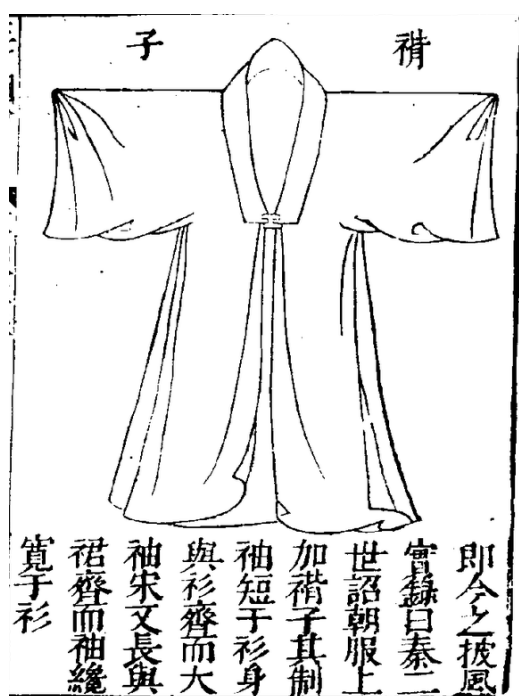 褙子
即今之披風
實錄曰秦二
世詔朝服上
加褙子其制
袖短于衫身
與衫齊而大
袖宋文長與
裙齊而袖纔
寬于衫